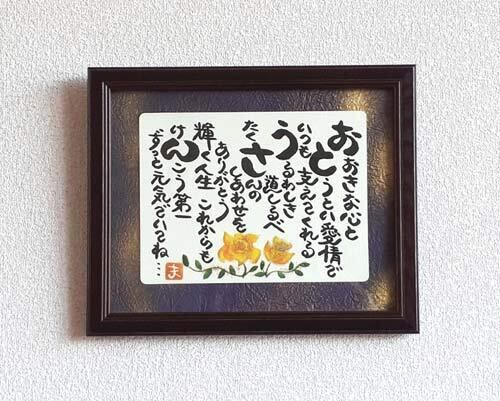 おおきな心と
とうとい愛情で
いつも支えてくれる
うるわしき道しるべ
たくさんの
しあわせを
ありがとう
輝く人生 これからも
けんこう第一
ずっと元気でいてね…
ま